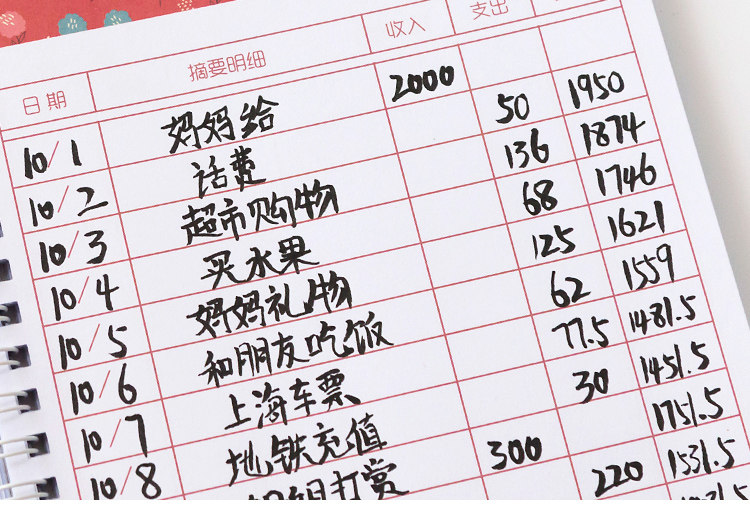 日期 摘要明细 收入 支出
10/1 妈妈给 2000
10/2 话费 50 1950
10/3 超市购物 136 1874
10/4 买水果 68 1746
10/5 妈妈礼物 125 1621
10/6 和朋友吃饭 62 1559
10/7 上海车票 77.5 1481.5
10/8 地铁充值 30 1451.5
打赏 300 1751.5
220 1531.5